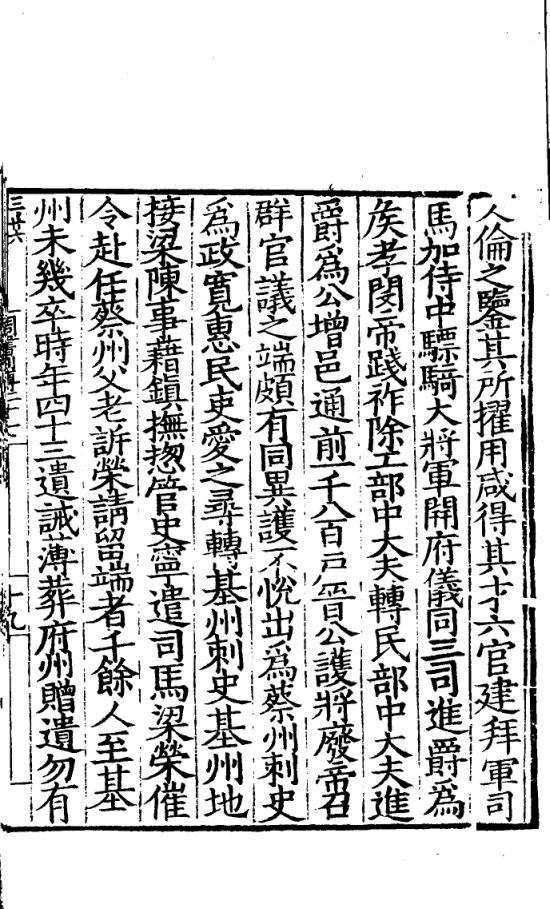 人倫之鑒其所擢用咸得其才六官建拜軍司
馬加侍中驃騎大將軍開府儀同三司進爵為
侯孝閔帝踐祚除工部中大夫轉民部中大夫進
爵為公增邑通前一千八百戶晉公護將廢帝召
群官議之端頗有同異護不悅出為蔡州刺史
為政寬惠民吏愛之尋轉基州刺史基州地
接梁陳事藉鎮撫揔管史寧遣司馬梁榮催
令赴任蔡州父老訴榮請留端者千餘人至基
州未幾卒時年四十三遺誡薄葬府州贈遺勿有
十九